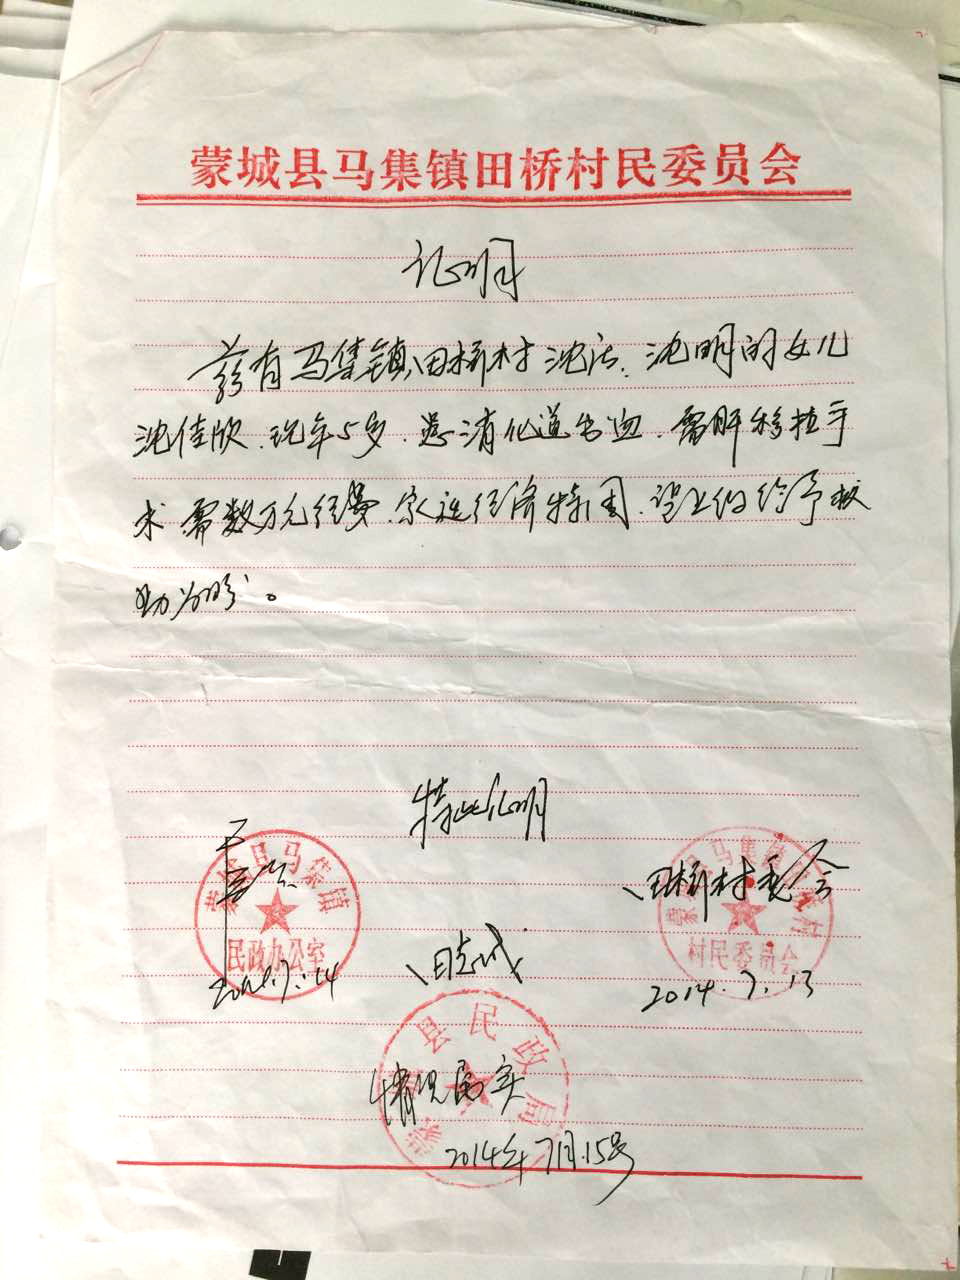 蒙城县马集镇田桥村民委员会
证明
兹有马集镇田桥村沈 、沈明的女儿
沈佳欣.现年5岁.患消化道出血.需肝移植手
术需数万元经费.家庭经济特困.望上级给予救
助为盼。
特此证明
蒙城县马集镇
民政办公室
2014.7.14
田桥村委会
蒙城县马集镇田桥村
村民委员会
2014.7.13
田志成
蒙城县民政局
情况属实
2014年7月15号